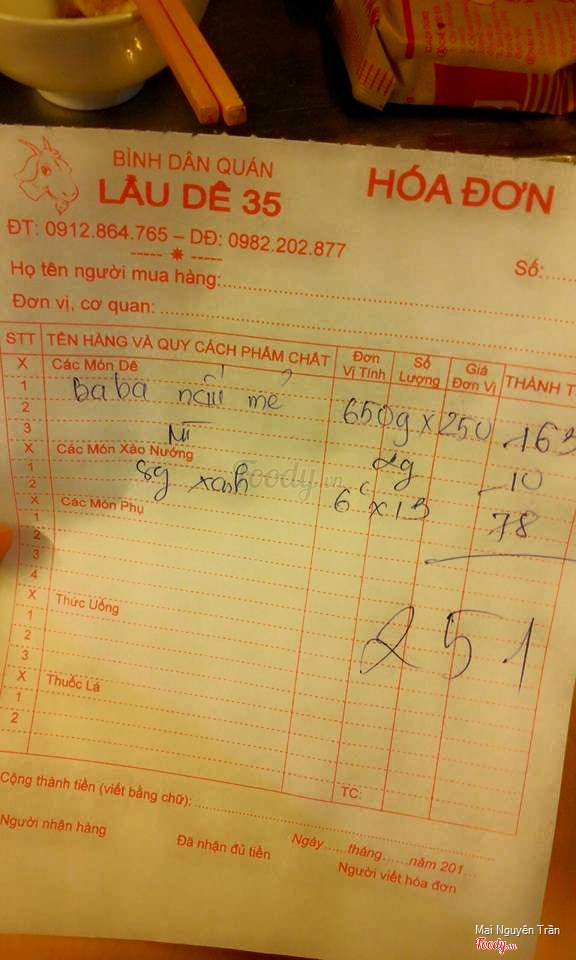 BÌNH DÂN QUÁN
LẨU DÊ 35
HÓA ĐƠN
ĐT: 0912.864.765 – DĐ: 0982.202.877
Số:
Họ tên người mua hàng:
Đơn vị, cơ quan:
STT TÊN HÀNG VÀ QUY CÁCH PHẨM CHẤT Đơn Vị Tính Số Lượng Giá Đơn Vị THÀNH T
X Các Món Dê
1 baba nấu mẻ 650g x 250 163
2
3 Mì 2g 10
X Các Món Xào Nướng
1 sg xanh 6c x 13 78
2
X Các Món Phụ
1
2
3
4
251
X Thức Uống
1
2
3
X Thuốc Lá
1
2
TC:
Cộng thành tiền (viết bằng chữ):
Ngày tháng năm 201
Người nhận hàng Đã nhận đủ tiền Người viết hóa đơn
Foody.vn
Mai Nguyên Trần
Foody.vn